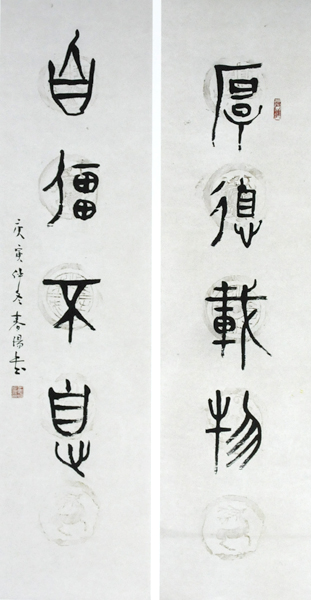 厚德載物
自彊不息
庚寅仲冬春陽書